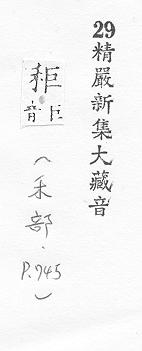 29精嚴新集大藏音
秬
音巨
(禾部.P.745)